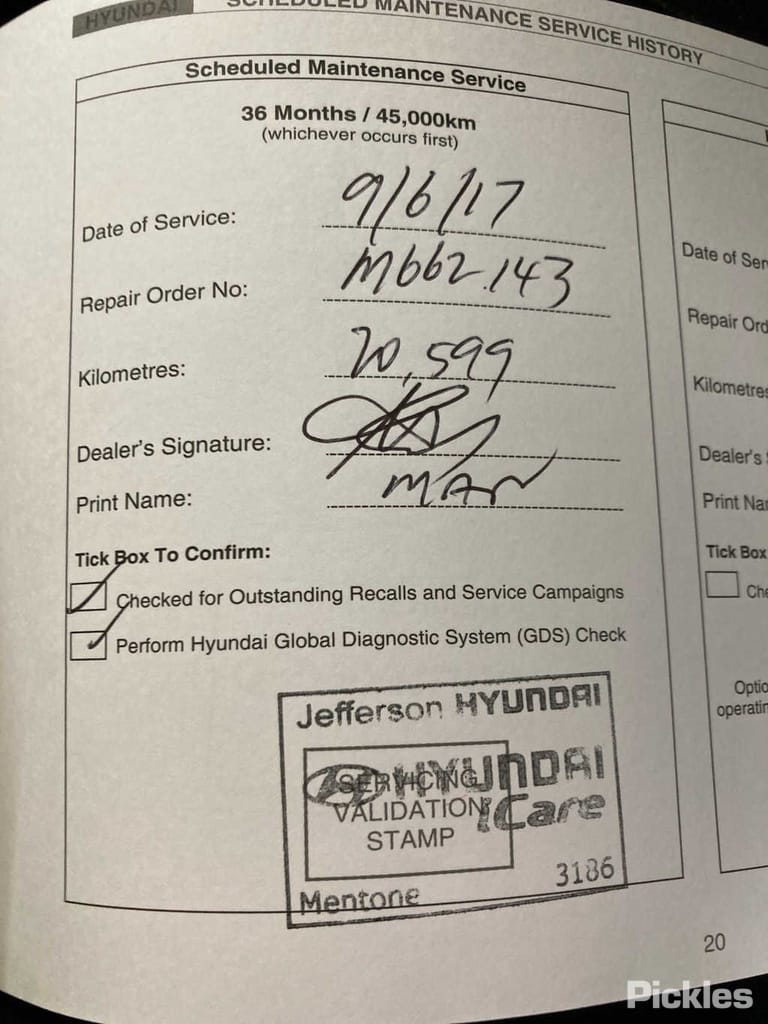 HYUNDAI
SCHEDULED MAINTENANCE SERVICE HISTORY
Scheduled Maintenance Service
36 Months / 45,000km
(whichever occurs first)
Date of Service: 9/6/17
Repair Order No: M662143
Kilometres: 20,599
Dealer's Signature:
Print Name: MAN
Tick Box To Confirm:
Checked for Outstanding Recalls and Service Campaigns
Perform Hyundai Global Diagnostic System (GDS) Check
Jefferson HYUNDAI
HYUNDAI
iCare
SERVICING
VALIDATION
STAMP
Mentone 3186
Date of Ser
Repair Ord
Kilometres
Dealer's
Print Na
Tick Box
Che
Optio
operatin
20
Pickles